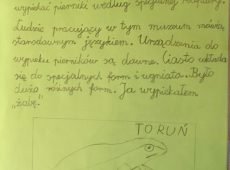 wypiekać pierniki według specjalnej receptury.
Ludzie pracujący w tym muzeum mówią
starodawnym językiem. Urządzenia do
wypieku pierników są dawne. Ciasto wkłada
się do specjalnych form i ugniata. Było
dużo różnych form. Ja wypiekałem
„żabę”.
TORUŃ